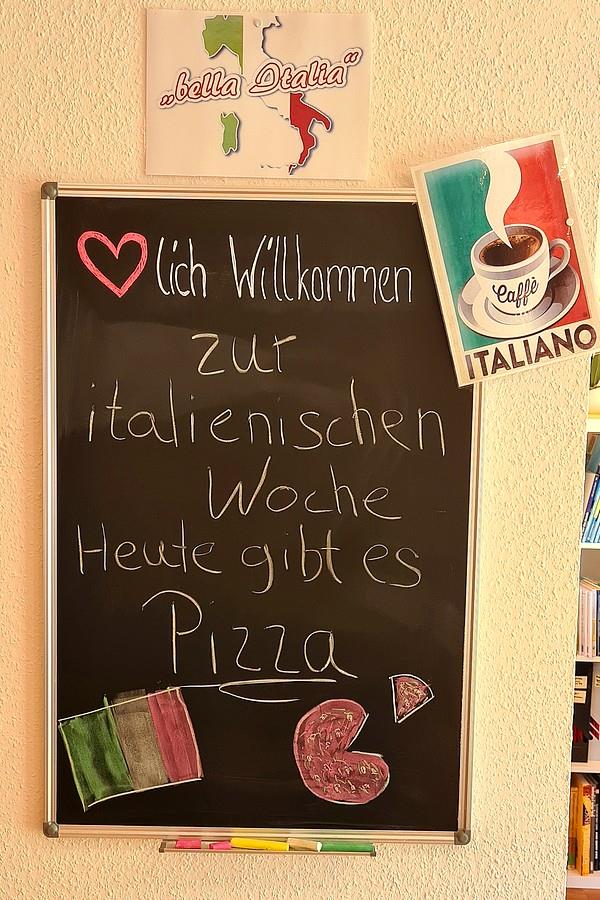 „bella Italia“
Caffè
ITALIANO
lich Willkommen
zur
italienischen
Woche
Heute gibt es
Pizza